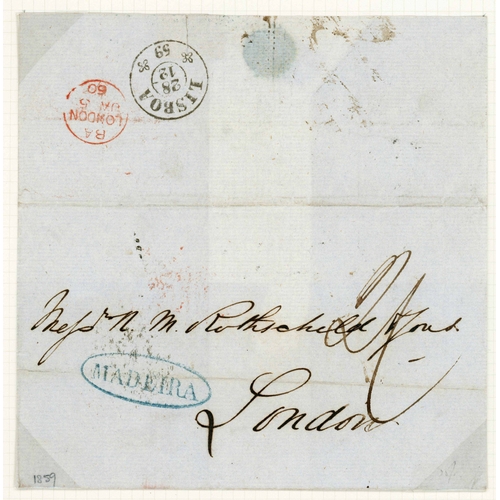 LISBOA
28
12
59
BA
LONDON
JA 5
60
Messrs N. M. Rothschild & Sons
MADEIRA
London
1859